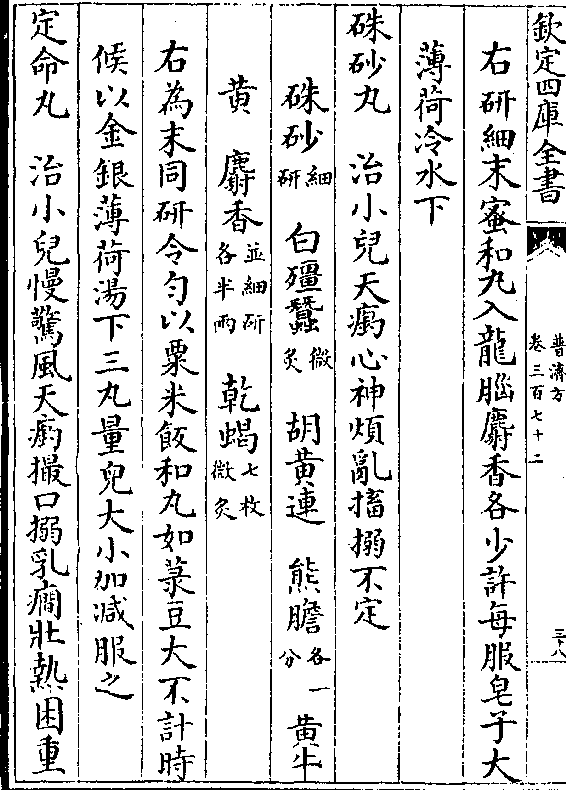 欽定四庫全書
普濟方
卷三百七十二
三十八
右研細末蜜和丸入龍腦麝香各少許每服皂子大
薄荷冷水下
硃砂丸 治小兒天瘹心神煩亂搐搦不定
硃砂細研 白殭蠶微炙 胡黃連 熊膽各一分 黃牛
黃 麝香並細研各半兩 乾蝎七枚微炙
右為末同研令勻以粟米飯和丸如菉豆大不計時
候以金銀薄荷湯下三丸量兒大小加減服之
定命丸 治小兒慢驚風天瘹撮口搦乳癇壯熱困重